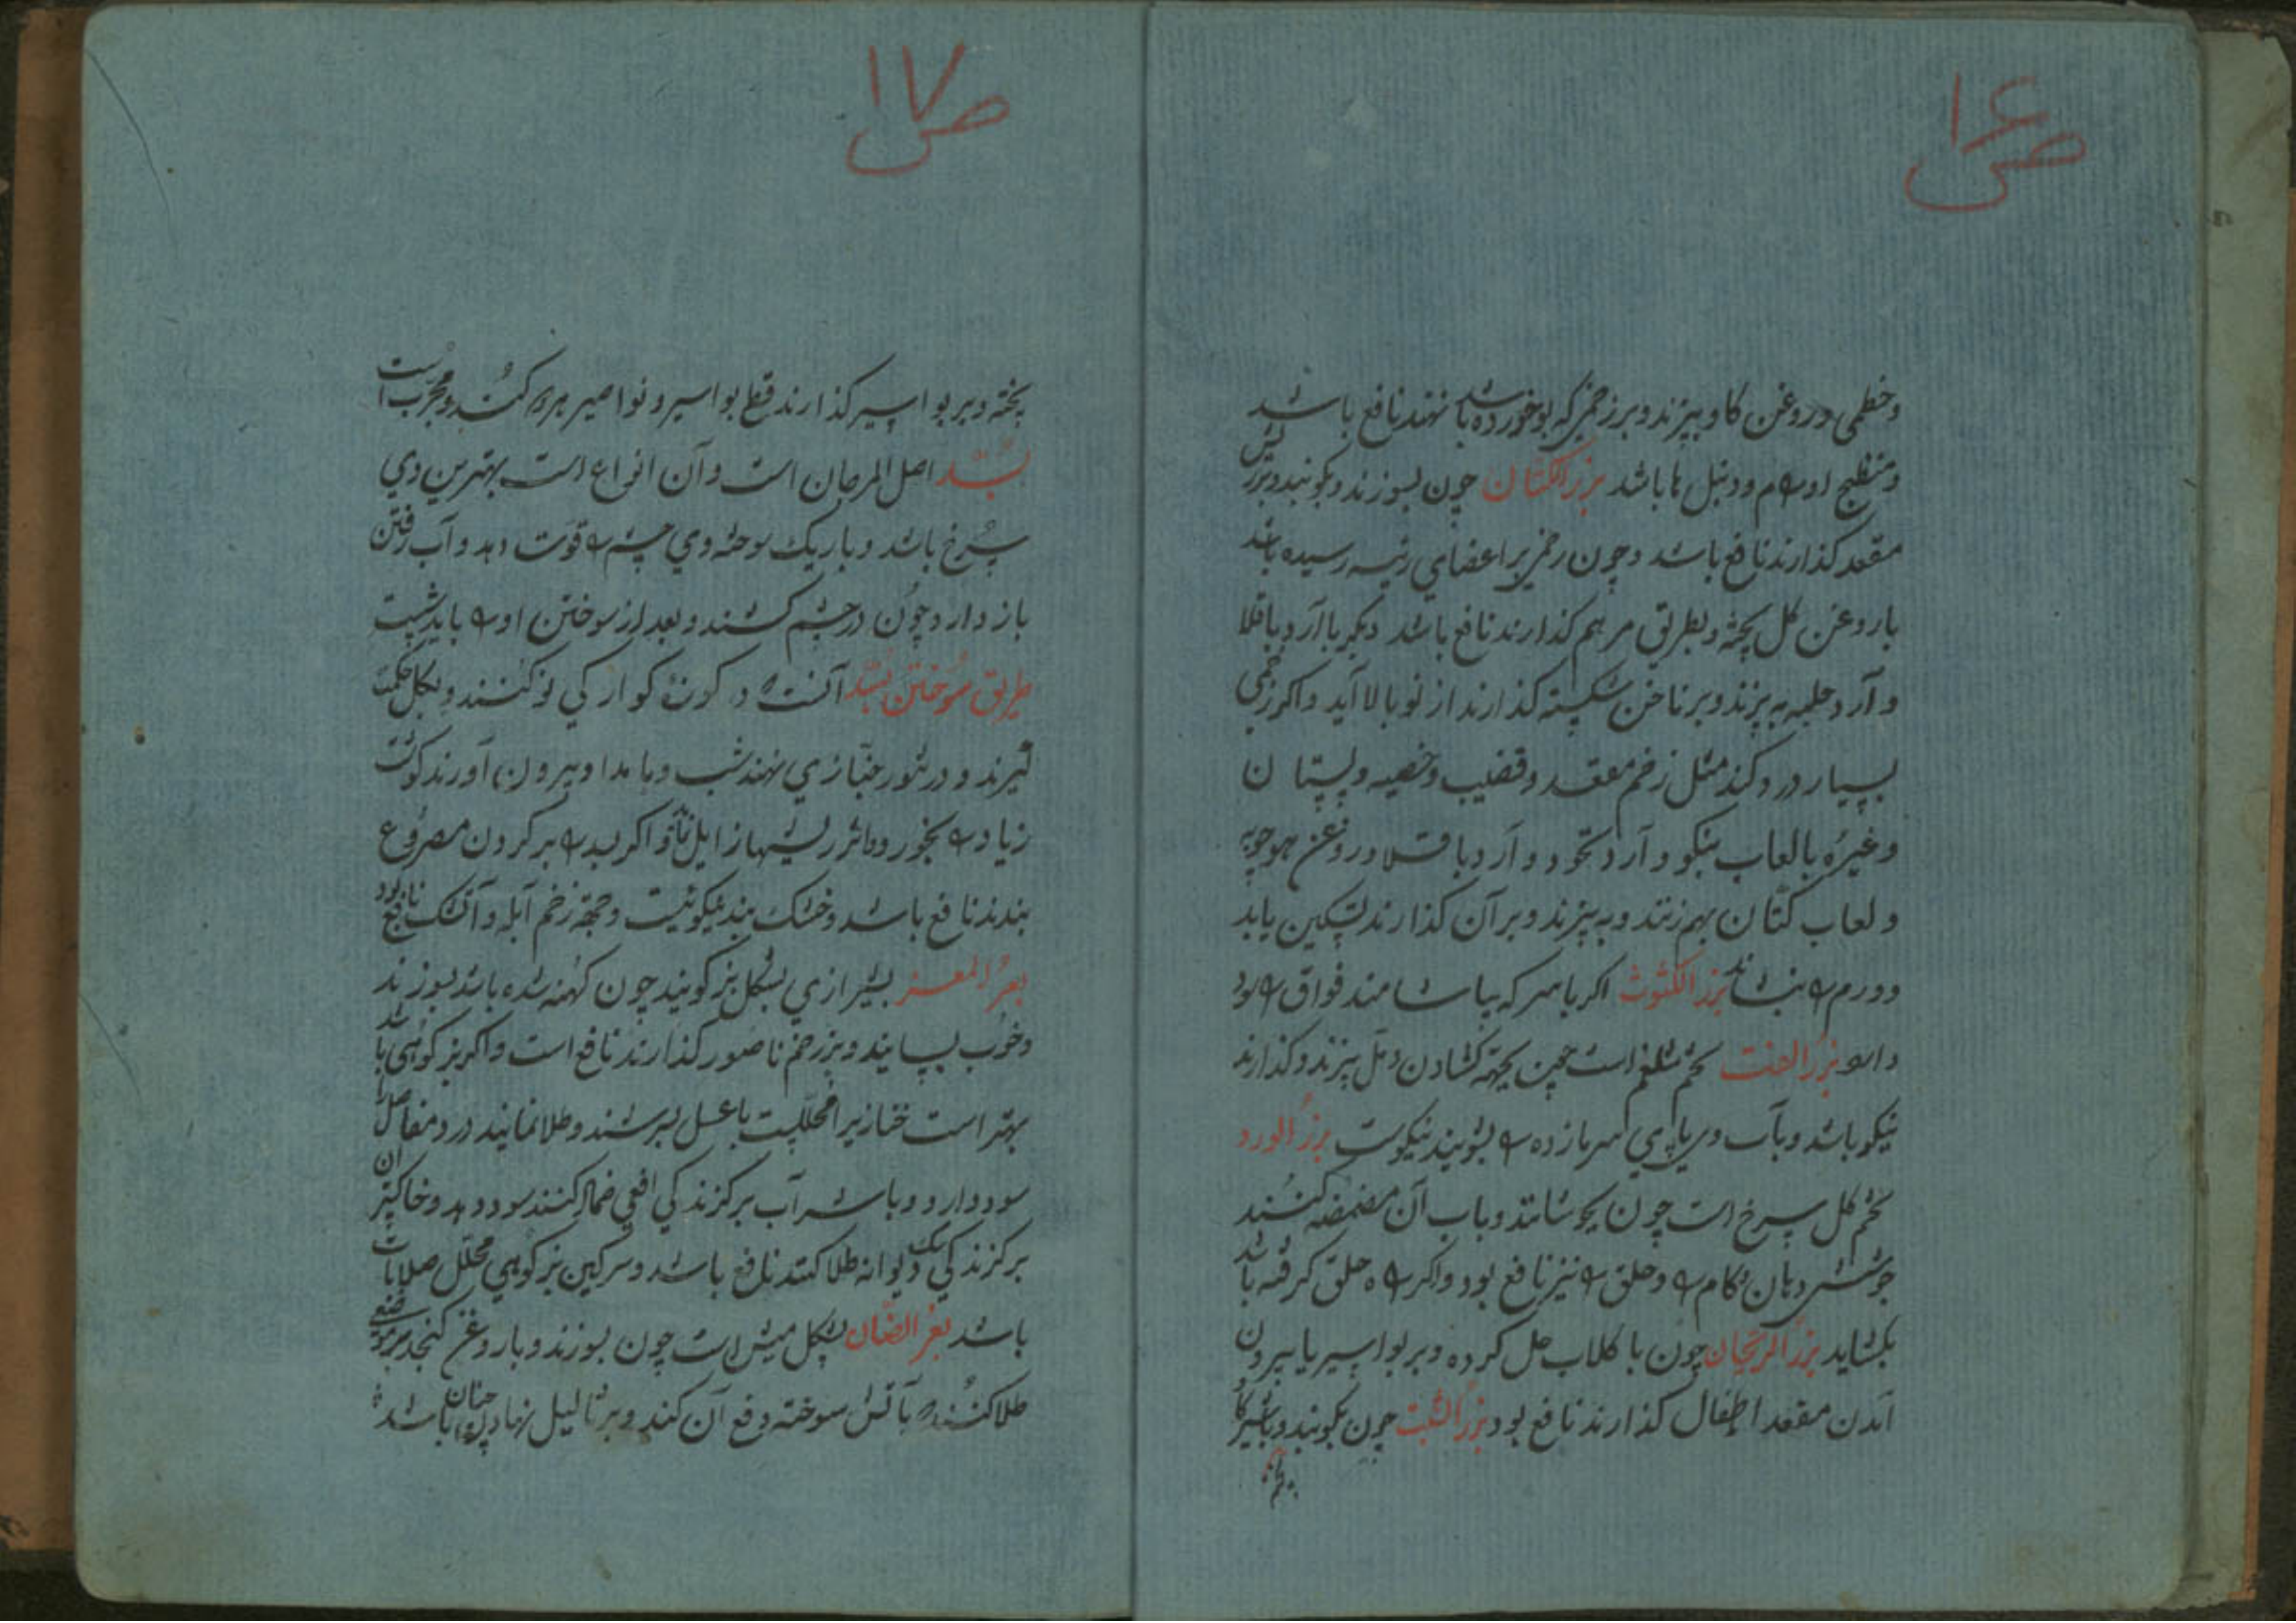 ص ۱۶
وخطمی در روغن کاو بپزند و بر زخمی که بو خورده باشد نهند نافع باشد
ومنضج اورام ودنبل ها باشد بزر الکتان چون بسوزند وبکوبند وبر ریش
مقعد کذارند نافع باشد وچون زخمی بر اعضای رئیسه رسیده باشد
با روغن کل پخته وبطریق مرهم کذارند نافع باشد دیکر با آرد باقلا
وآرد حلبه به پزند وبر ناخن شکسته کذارند از نو بالا آید واکر زخمی
بسیار درد کند مثل زخم مقعد وقضیب وخصیه وپستان
وغیره بالعاب بنکو وآرد نخود وآرد باقلا در روغن جوجوبه
ولعاب کتان بهم زنند وبه پزند وبر آن کذارند تسکین یابد
وورم را بنشاند بزر الکشوث اکر با سرکه بیاشامند فواق را سود
دارد بزر الفت تخم شلغم است چون بجهة کشادن دمل بپزند وکذارند
نیکو باشد وبآب وی پای سرما زده را بشویند نیکوست بزر الورد
تخم کل سرخ است چون بجوشانند وباب آن مضمضه کنند
جوشش دهان وکام را وحلق را نیز نافع بود واکر راه حلق کرفته باشد
بکشاید بزر الریحان چون با کلاب حل کرده وبر بواسیر یا بیرون
آمدن مقعد اطفال کذارند نافع بود بزر الشبت چون بکوبند وبا شیر کاو
ص ۱۷
پخته وبر بواسیر کذارند قطع بواسیر ونواصیر بکنند ومجرب است
بسد اصل المرجان است وآن انواع است بهترین وی
سرخ باشد وباریک سوخته وی چشم را قوت دهد وآب رفتن
باز دارد وچون در چشم کشند وبعد از سوختن او را باید شست
طریق سوختن بسد آنست که در کوزه کواره کی نو کنند وبکل حکمت
کیرند ودر تنور خبازی نهند شب وبامداد بیرون آورند کوشت
زیاده بخورد واثر ریشها زایل کند واکر بسد را بر کردن مصروع
بندند نافع باشد وخشک بند نیکوئیست وجهة زخم آبله وآتشک نافع بود
بعر المعز بشیرازی پشکل بز کویند چون کهنه شده باشد بسوزند
وخوب بسایند وبر زخم ناصور کذارند نافع است واکر بز کوهی باشد
بهتر است خنازیر را محللیست با عسل بسرشند وطلا نمایند درد مفاصل را
سود دارد وبا شراب بر کزندکی افعی ضماد کنند سود دهد وخاکستر آن
بر کزندکی سک دیوانه طلا کنند نافع باشد وسرکین بز کوهی محلل صلابات
باشد بعر الضأن پشکل میش است چون بسوزند وبا روغن کنجد بر موضعی
طلا کنند که بآتش سوخته دفع آن کند وبر ثالیل نهادن چنان باشد